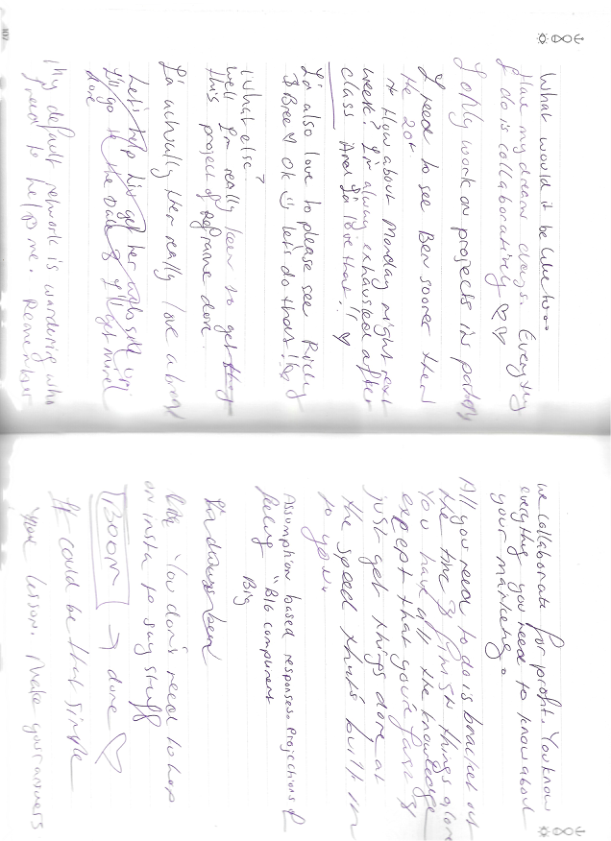 What would it be like to...
Have my dream days. Everything
I do is collaboratively ♡♡
I only work on projects in
I need to see Ben sooner then
the 20th
How about Monday night next
week? I'm always exhausted after
class And I'd love that!! ♡
I'd also love to please see Ricky
& Bree ♡ OK let's do that!
What else?
Well I'm really keen to get
this project of done.
I'd actually then really love a
My default network is wondering who
I need to help me. Remember
we collaborate for profit. You know
everything you need to know about
your marketing.
All you need to do is bracket out
the time & finish things alone
You have all the knowledge
except that you're fast &
just get things done at
the speed that's built in
to you.
Assumption based responses. Projections of
feeling "Big component
Big
like You don't need to hop
on insta to say stuff
BOOM → done ♡
It could be that simple
your lesson. Make your answers